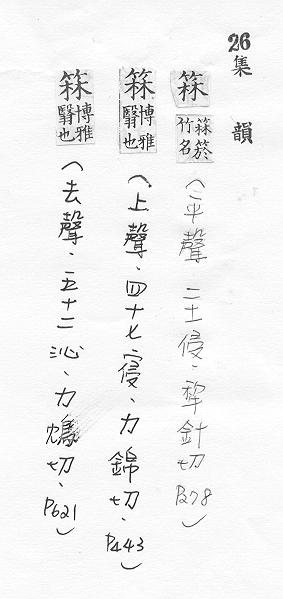 26集韻
箖 箖箊竹名（平聲 二十一侵．犂針切 P278）
箖 博雅翳也（上聲．四十七寑．力錦切．P443）
箖 博雅翳也（去聲．五十二沁．力鴆切．P621）